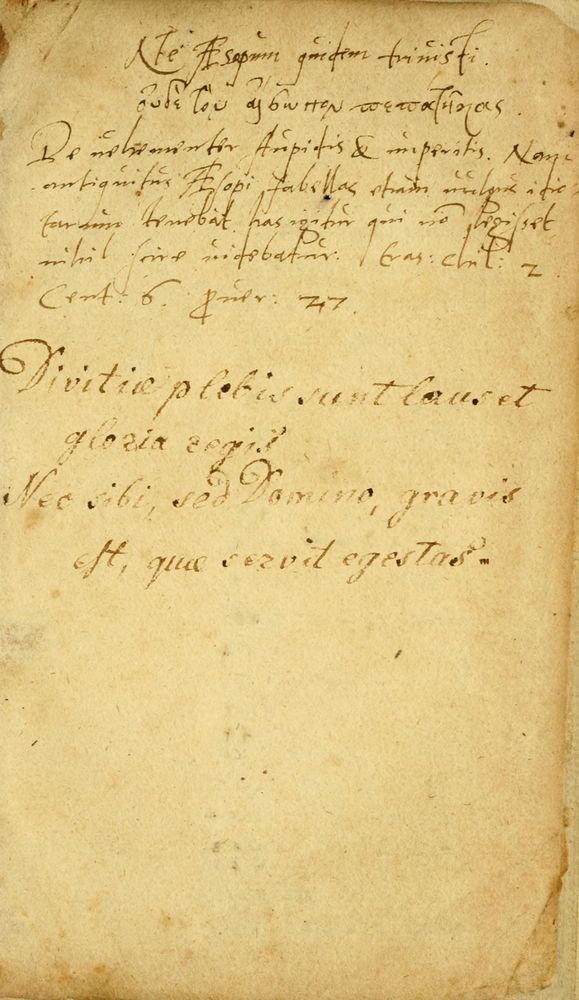 Ne Æsopum quidem trivisti.
οὐδὲ τὸν αἴσωπον πεπάτηκας.
De vehementer stupidis & imperitis. Nam
antiquitus Æsopi fabellas etiam vulgus idio-
tarum tenebat, has igitur qui nō legisset
nihil scire videbatur. Eras: Chil: 2.
Cent: 6. Prouer: 27
Divitiæ plebis sunt laus et
gloria regis
Nec sibi, sed Domino, gravis
est, quæ servit egestas.